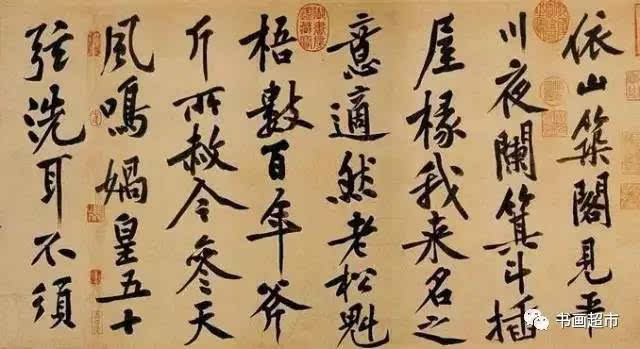 依山築閣見平
川夜闌箕斗插
屋椽我来名之
意適然老松魁
梧數百年斧
斤所赦今參天
風鳴媧皇五十
弦洗耳不須
书画超市